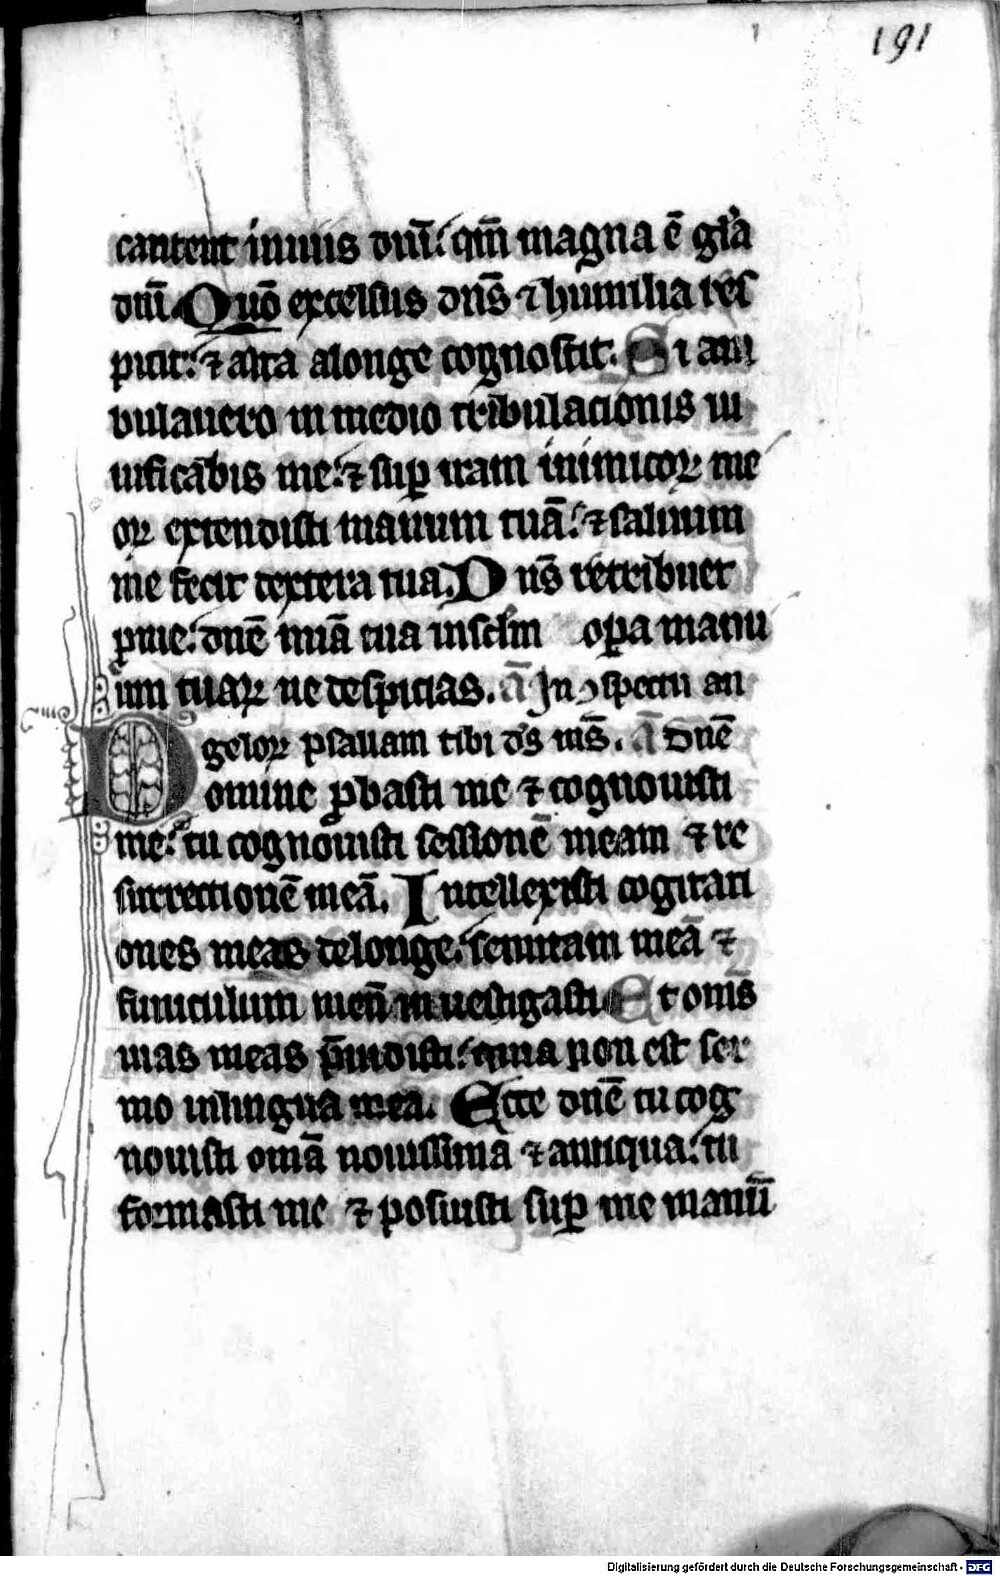 191
cantent inuiis dnı̄. qm̄ magna ē glı̄a
dnı̄. Qūo excelsus dn̄s ⁊ humilia res
picit: ⁊ alta alonge cognoscit. Si am
bulauero in medio tribulacionis ui
uificabis me: ⁊ suꝑ iram inimicoꝝ me
oꝝ extendisti manum tuā: ⁊ saluum
me fecit dextera tua. Dn̄s retribuet
ꝓ me: dn̄e mı̄a tua in sclm̄ oꝑa manu
um tuaꝝ ne despicias. an̄ In ꝯspectu an
geloꝝ psallam tibi ds̄ ms̄. an̄ Dn̄e
Domine ꝓbasti me ⁊ cognouisti
me: tu cognouisti sessionē meam ⁊ re
surrectionē meā. Intellexisti cogitati
ones meas delonge: semitam meā ⁊
funiculum meū inuestigasti Et om̄s
uias meas p̄uidisti: quia non est ser
mo in lingua mea. Ecce dn̄e tu cog
nouisti om̄ā nouissima ⁊ antiqua: tu
formasti me ⁊ posuisti suꝑ me manū
Digitalisierung gefördert durch die Deutsche Forschungsgemeinschaft - DFG